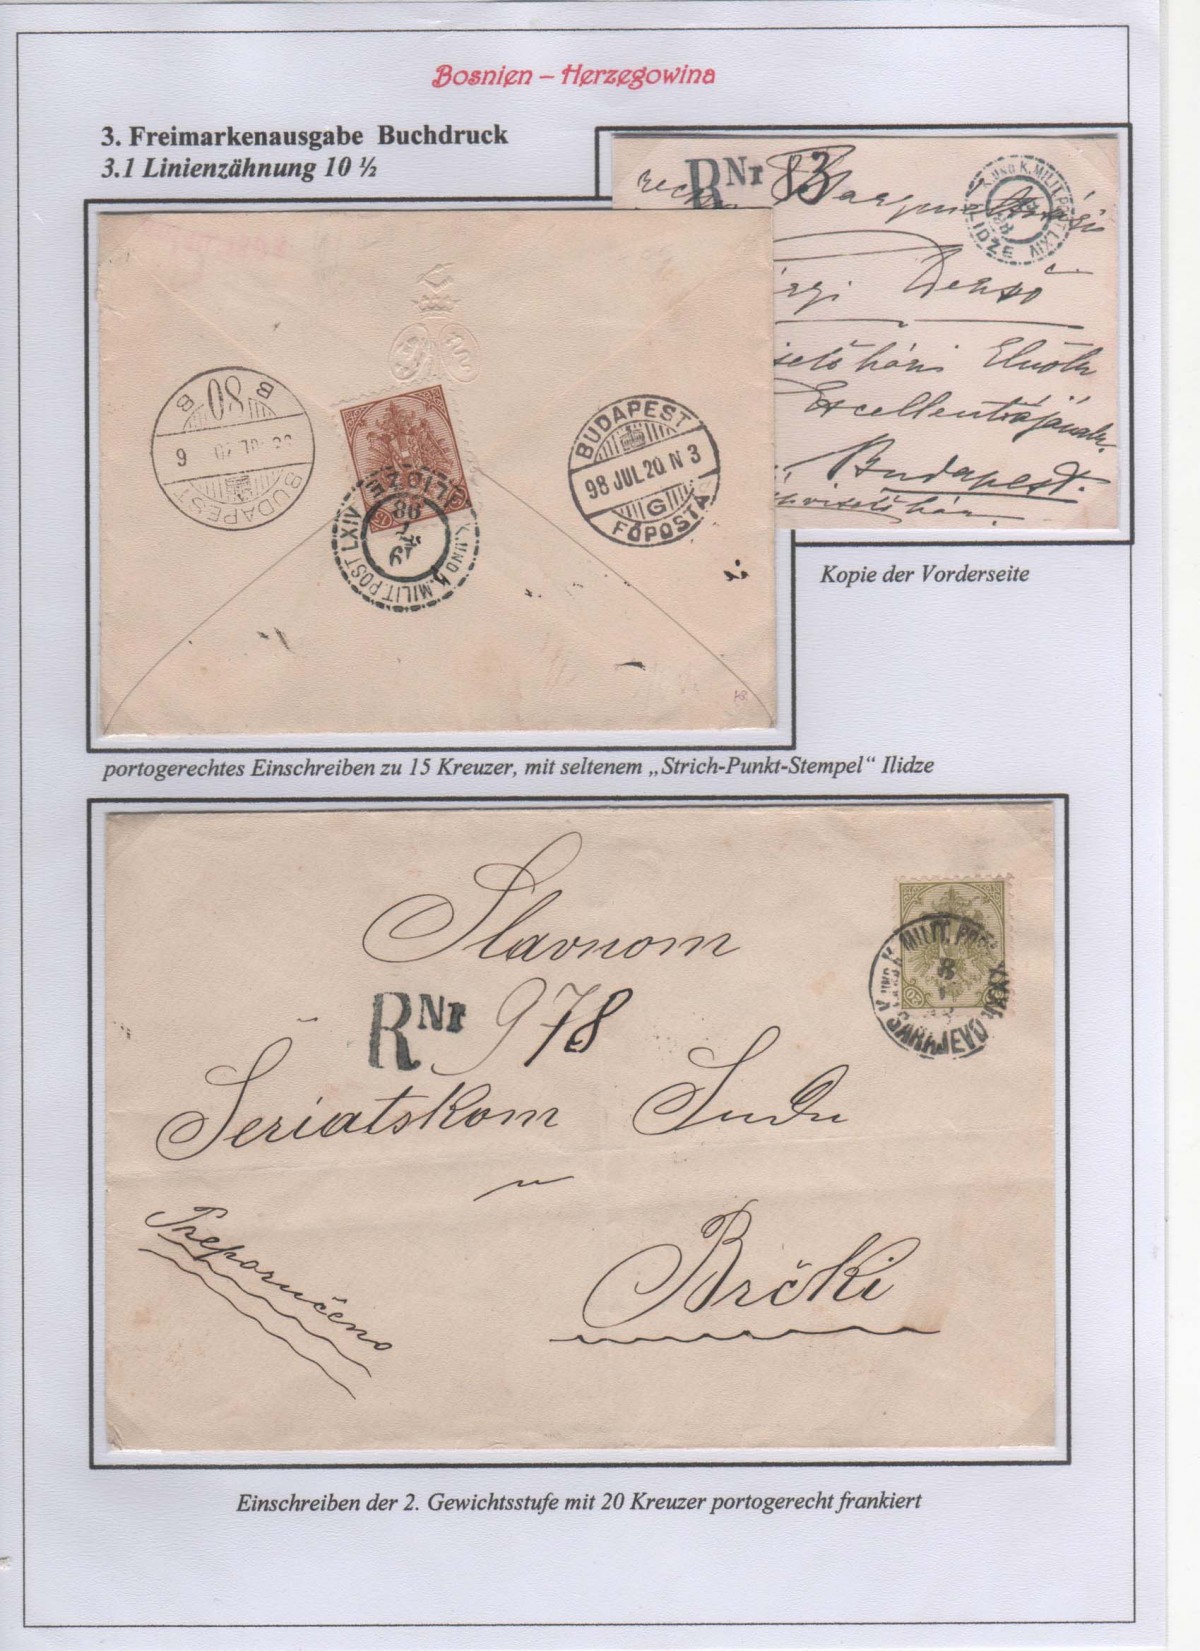 Bosnien – Herzegowina
3. Freimarkenausgabe Buchdruck
3.1 Linienzähnung 10 ½
R Nr 83
K. UND K. MILIT. POST LXIV
ILIDZE
Dezső
Elnök
Excellentiájának
Budapest.
BUDAPEST
B 80 B
BUDAPEST
98 JUL 20 N 3
G
FŐPOSTA
15
ILIDZE
98
19
K. UND K. MILIT. POST LXIV
Kopie der Vorderseite
portogerechtes Einschreiben zu 15 Kreuzer, mit seltenem „Strich-Punkt-Stempel“ Ilidze
Slavnom
20
K. UND K. MILIT. POST
SARAJEVO
R Nr 978
Šeriatskom Sudu
u
Preporučeno
Brčki
Einschreiben der 2. Gewichtsstufe mit 20 Kreuzer portogerecht frankiert